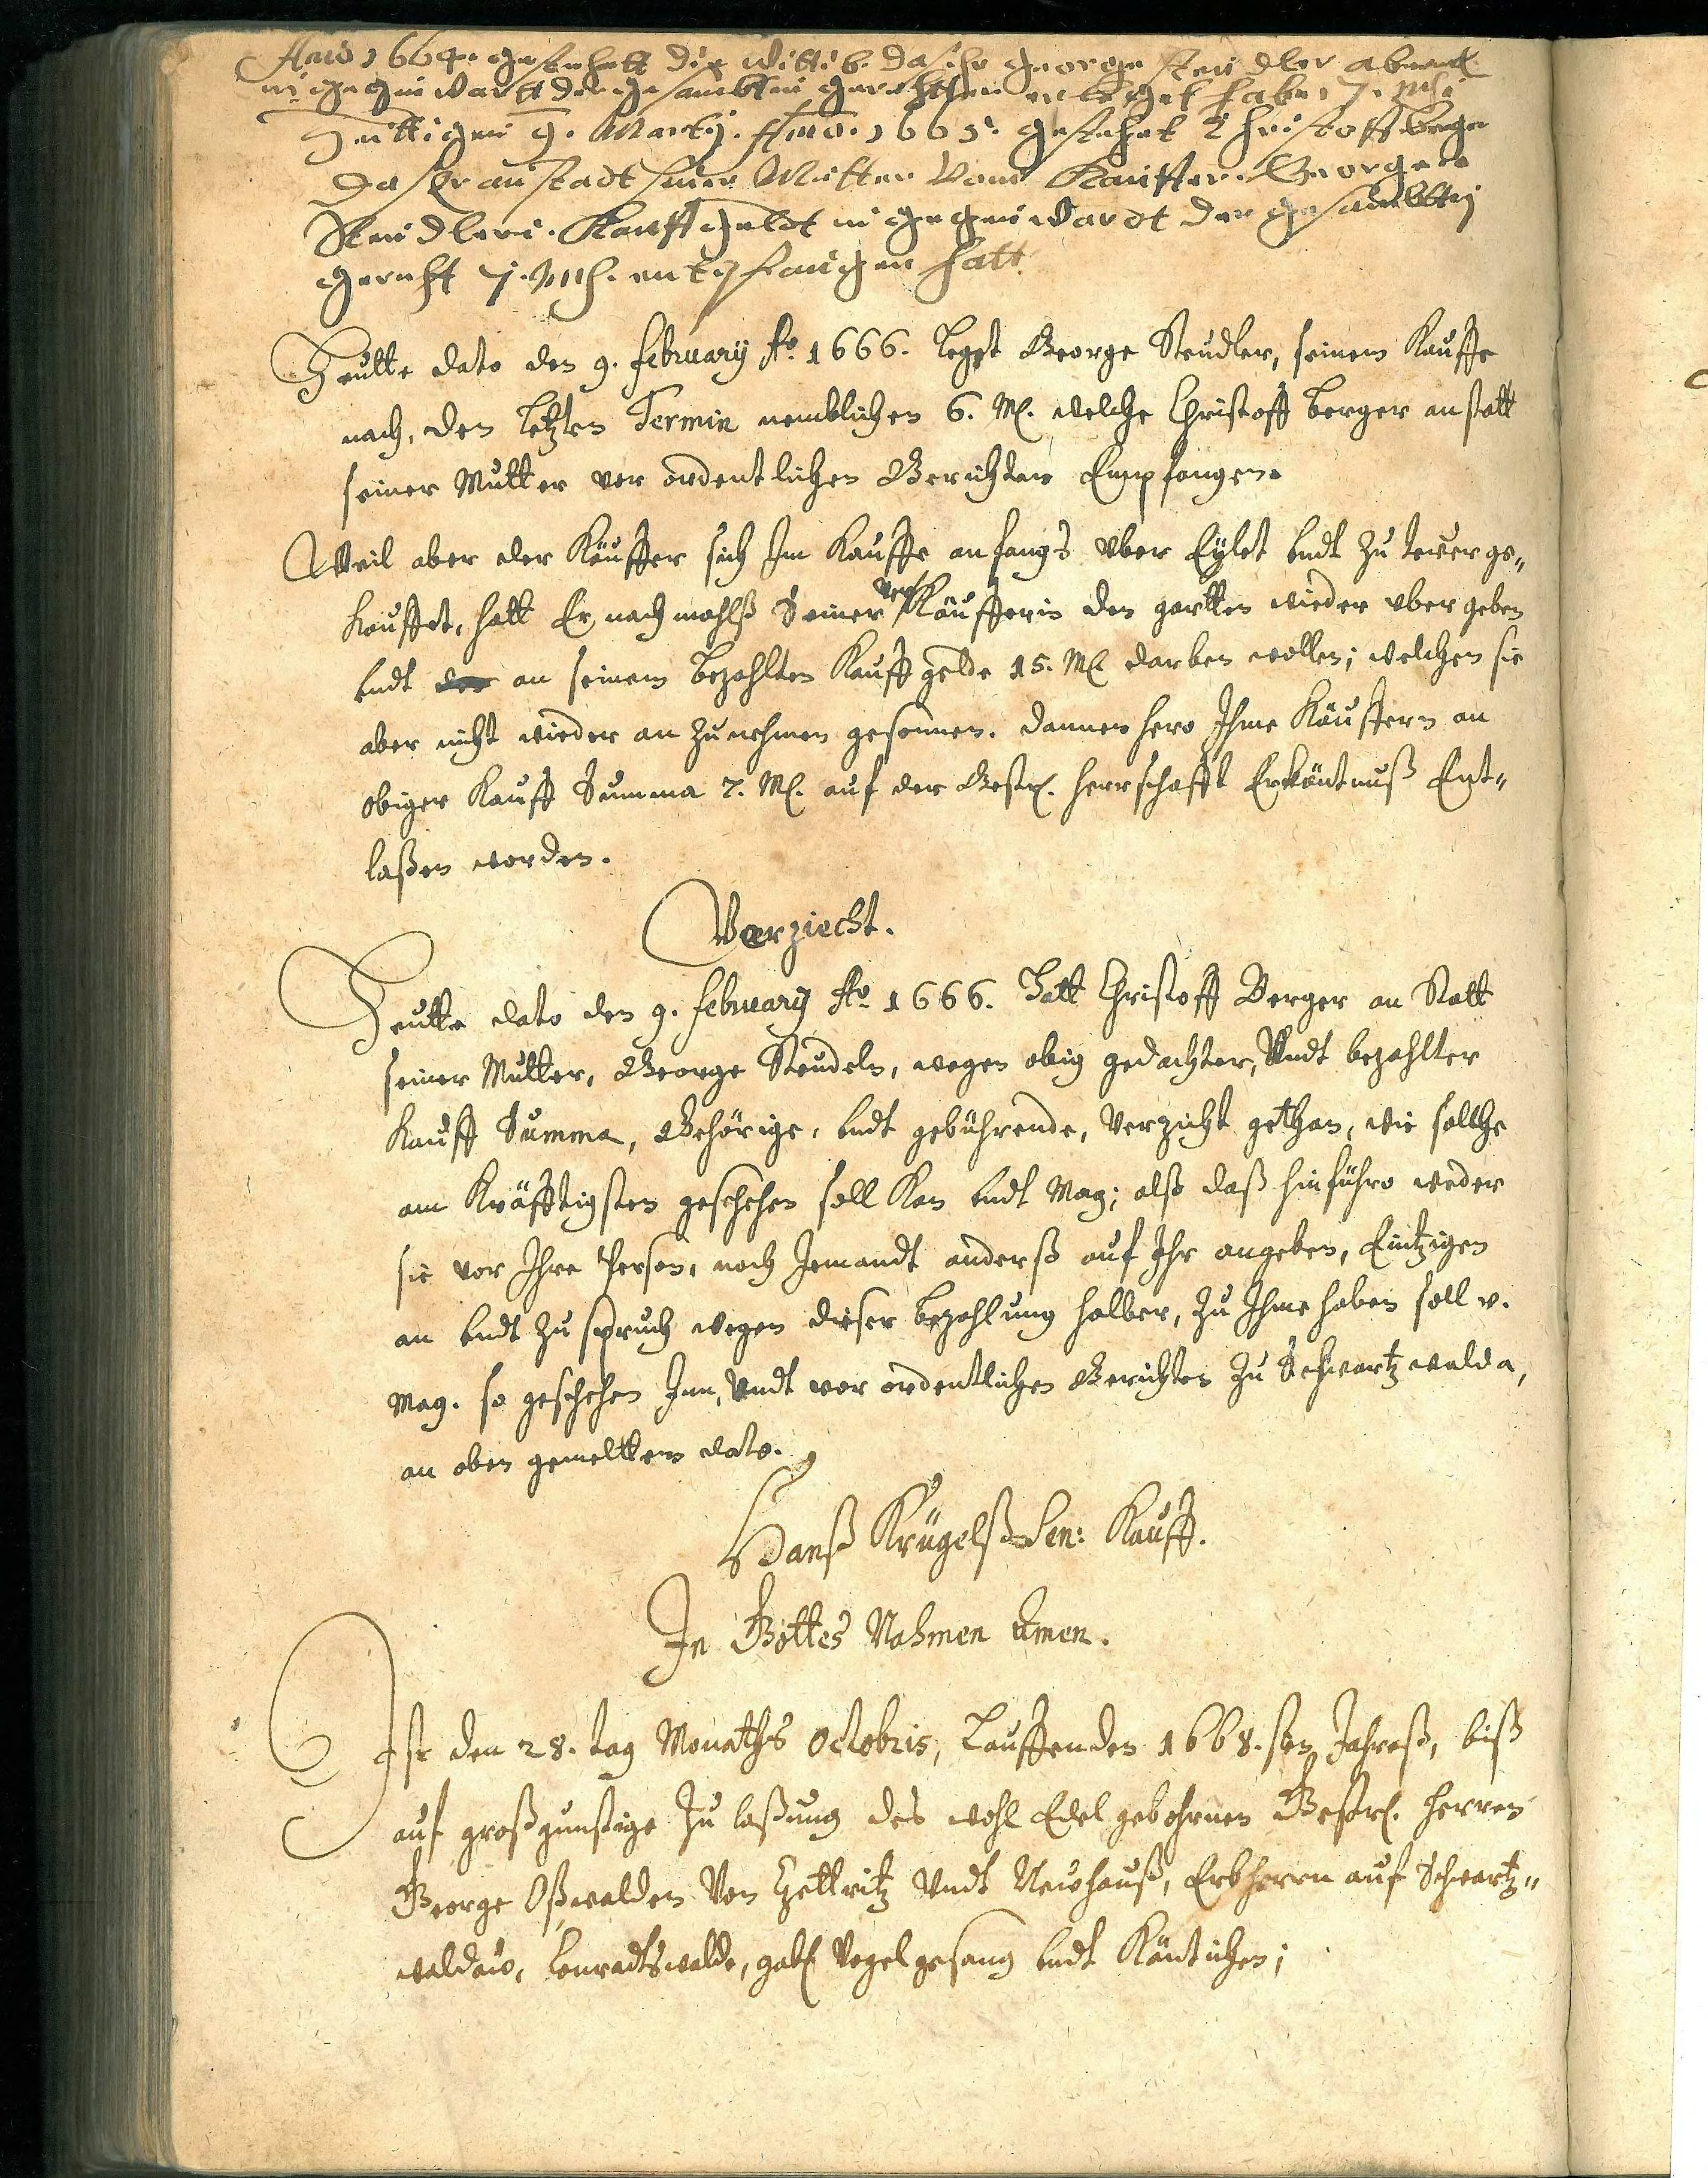 Anno 1664. gestehett die Wittib. das ihr George Steudler abermal
in gegenwardt der gesambten gerichten erleget habe, 7. Mk
Heuttigen 9. Martij. Anno. 1665. gestehet Christoff berger
das er anstadt seiner Mutter vom Kauffer. Georgen
Steudlern. Kauffgeldt in gegenwardt der gesambtten
gericht 7. Mk. entpfangen hatt
Heutte dato den 9. February Ao. 1666. legst George Steudler, seinem Kauffe
nach, den letzten Termin nemblichen 6. M. welche Christoff Berger anstatt
seiner Mutter vor ordentlichen Gerichten Empfangen.
Weil aber der Käuffer sich Im Kauffe anfangs vber Eylet vndt zu tewer ge-
kauffet, hatt Er nachmahlß Seiner Ver Käufferin den gartten wieder vbergeben
vndt an seinem bezahlten Kauffgelde 15. M darben wollen; welchen sie
aber nicht wieder an zu nehmen gesonnen. dannenhero Ihme Käuffern an
obiger Kauff Summa 7. M. auf der Gestr. Herrschafft Erkäntnuß Ent-
laßen worden.
Verziecht.
Heutte dato den 9. February Ao. 1666. Hatt Christoff Berger an Statt
seiner Mutter, George Steudeln, wegen obig gedachter, Vndt bezahlter
Kauff Summa, Gehörige, vndt gebührende, Verzicht gethan, wie sollche
am Kräfftigsten geschehen soll Kan vndt Mag; alß daß hinführo weder
sie vor Ihre Person, noch Jemandt anderß auf Ihr angeben, Eintzigen
an vndt zuspruch wegen dieser bezahlung halber, zu Ihme haben soll v.
Mag. so geschehen Inn, Vndt vor ordentlichen Gerichten zu Schwartzwalda,
an oben gemeltten dato.
Hanß Krügelß Sen: Kauff.
In Gottes Nahmen Amen.
Ist den 28. tag Monaths Octobris, Lauffenden 1668.sten Jahreß, biß
auf großgunstige Zulaßung des wohl Edel gebohrnen Gestr. Herren
George Oßwalden Von Zettritz Vndt Newhauß, Erbherrn auf Schwartz-
waldaw, Conradtswalde, Vogelgesang vndt Käntichen;